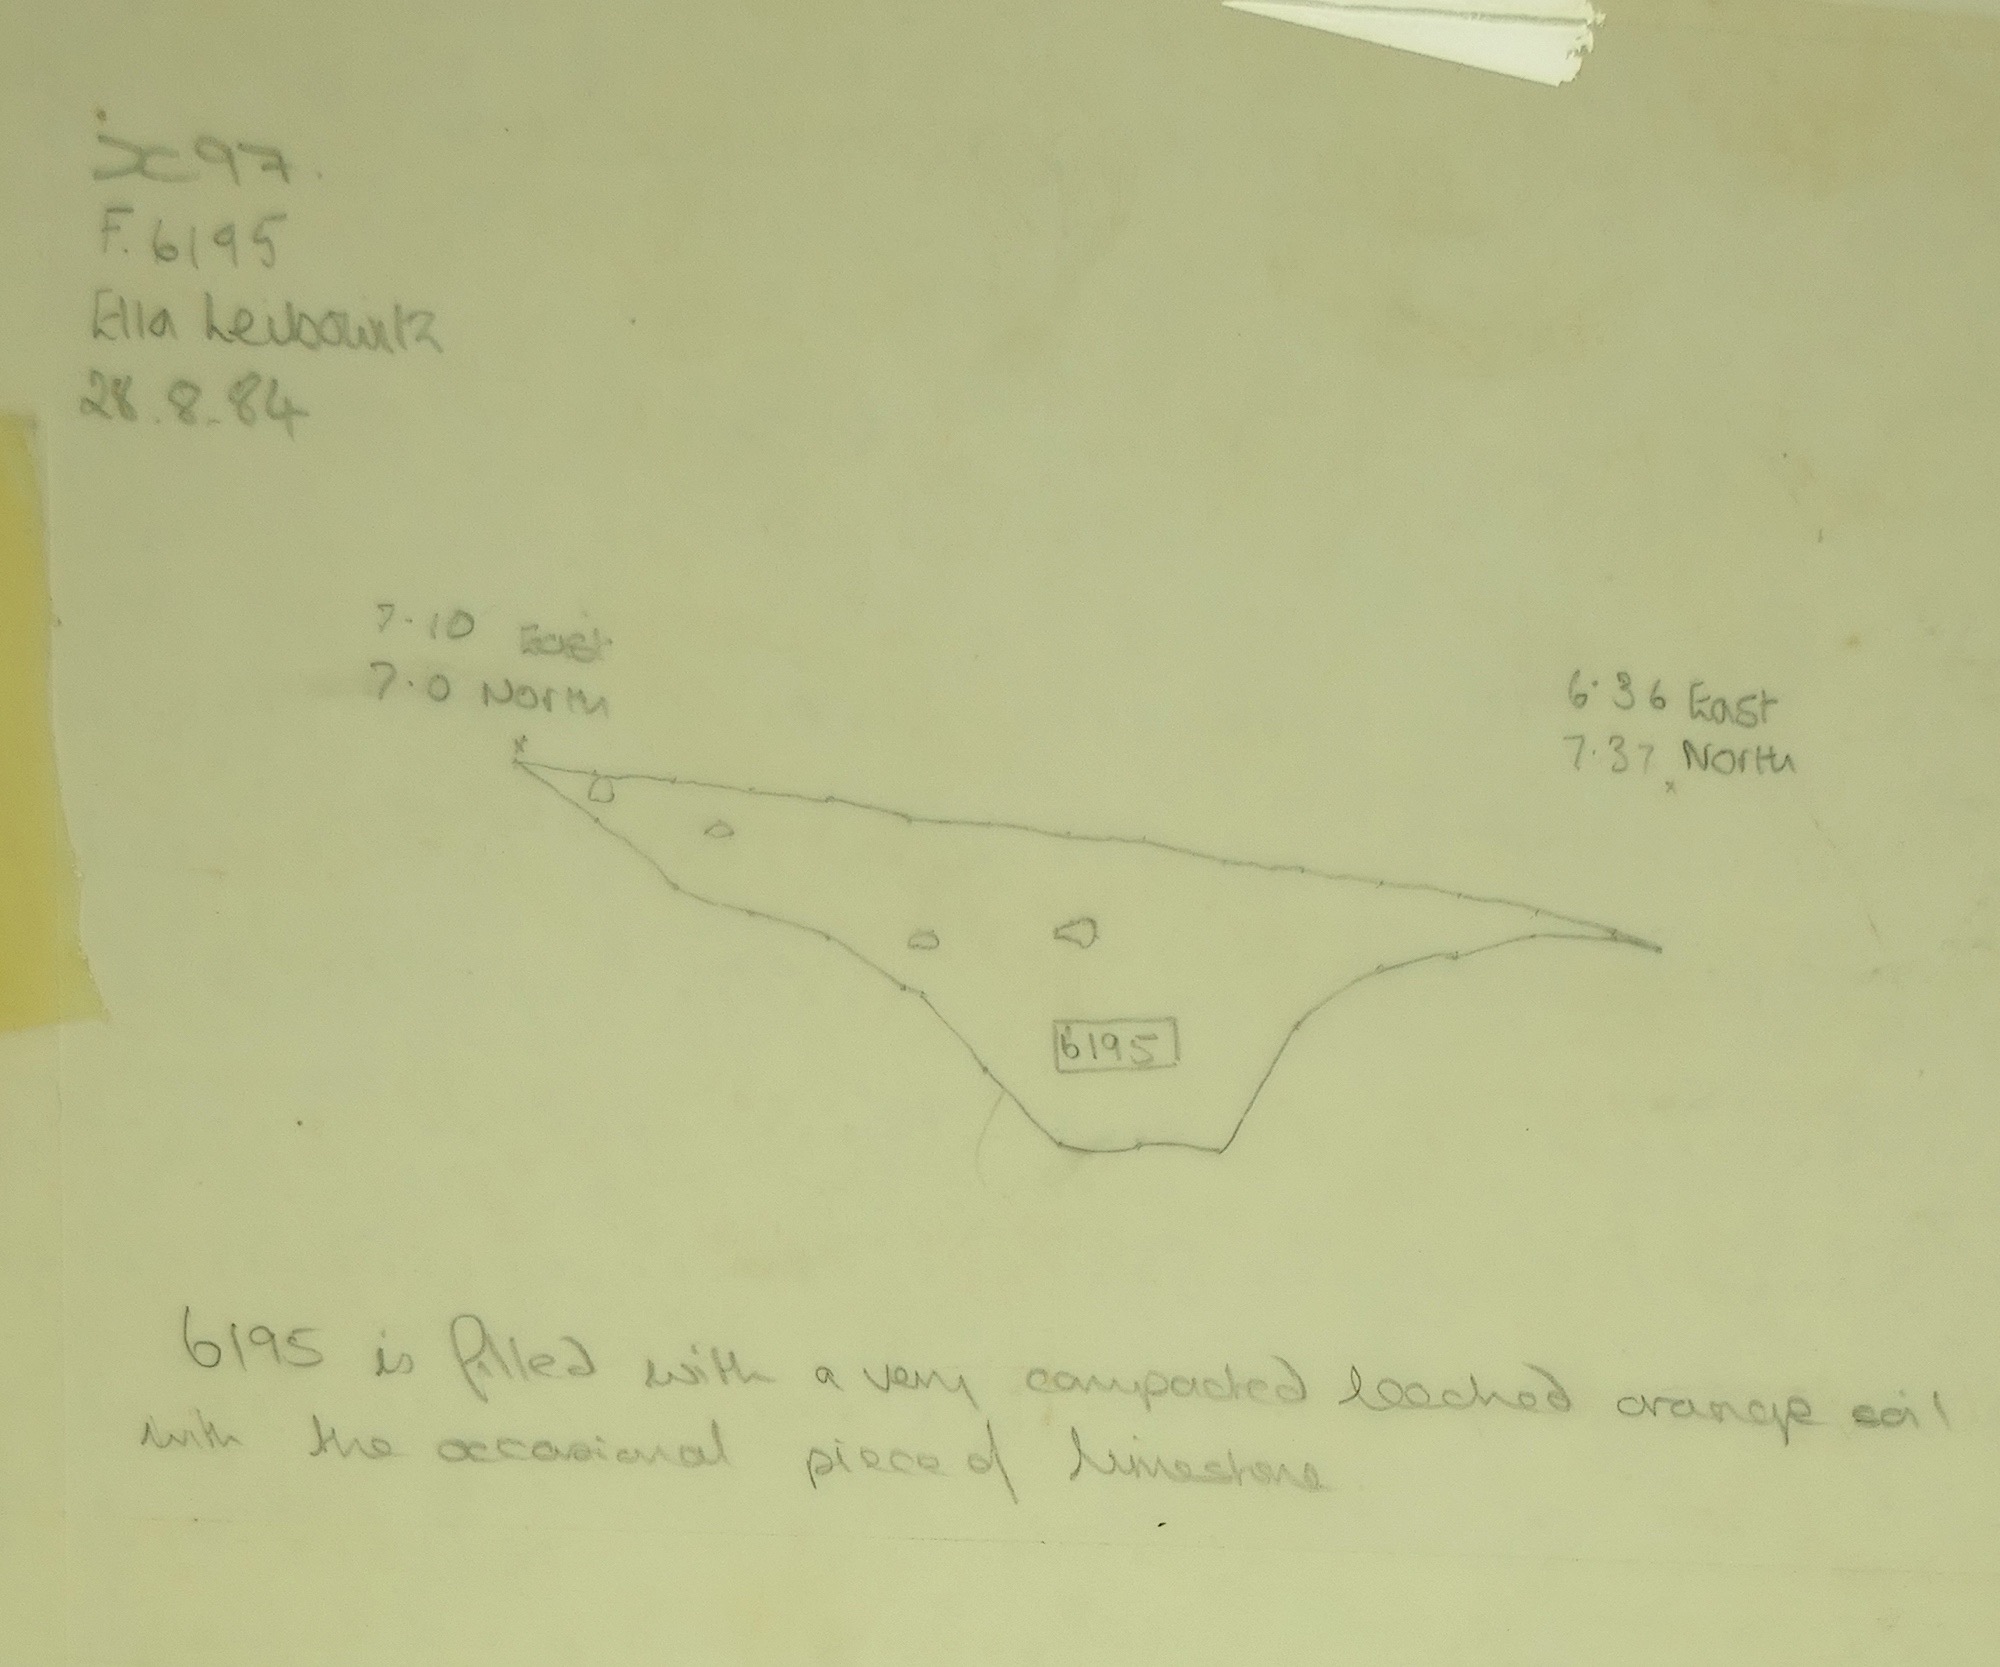 ix 97.
F. 6195
Ella Leibowitz
28.8.84
7.10 East
7.0 North
6.36 East
7.37 North
6195
6195 is filled with a very compacted leached orange soil
with the occasional piece of limestone